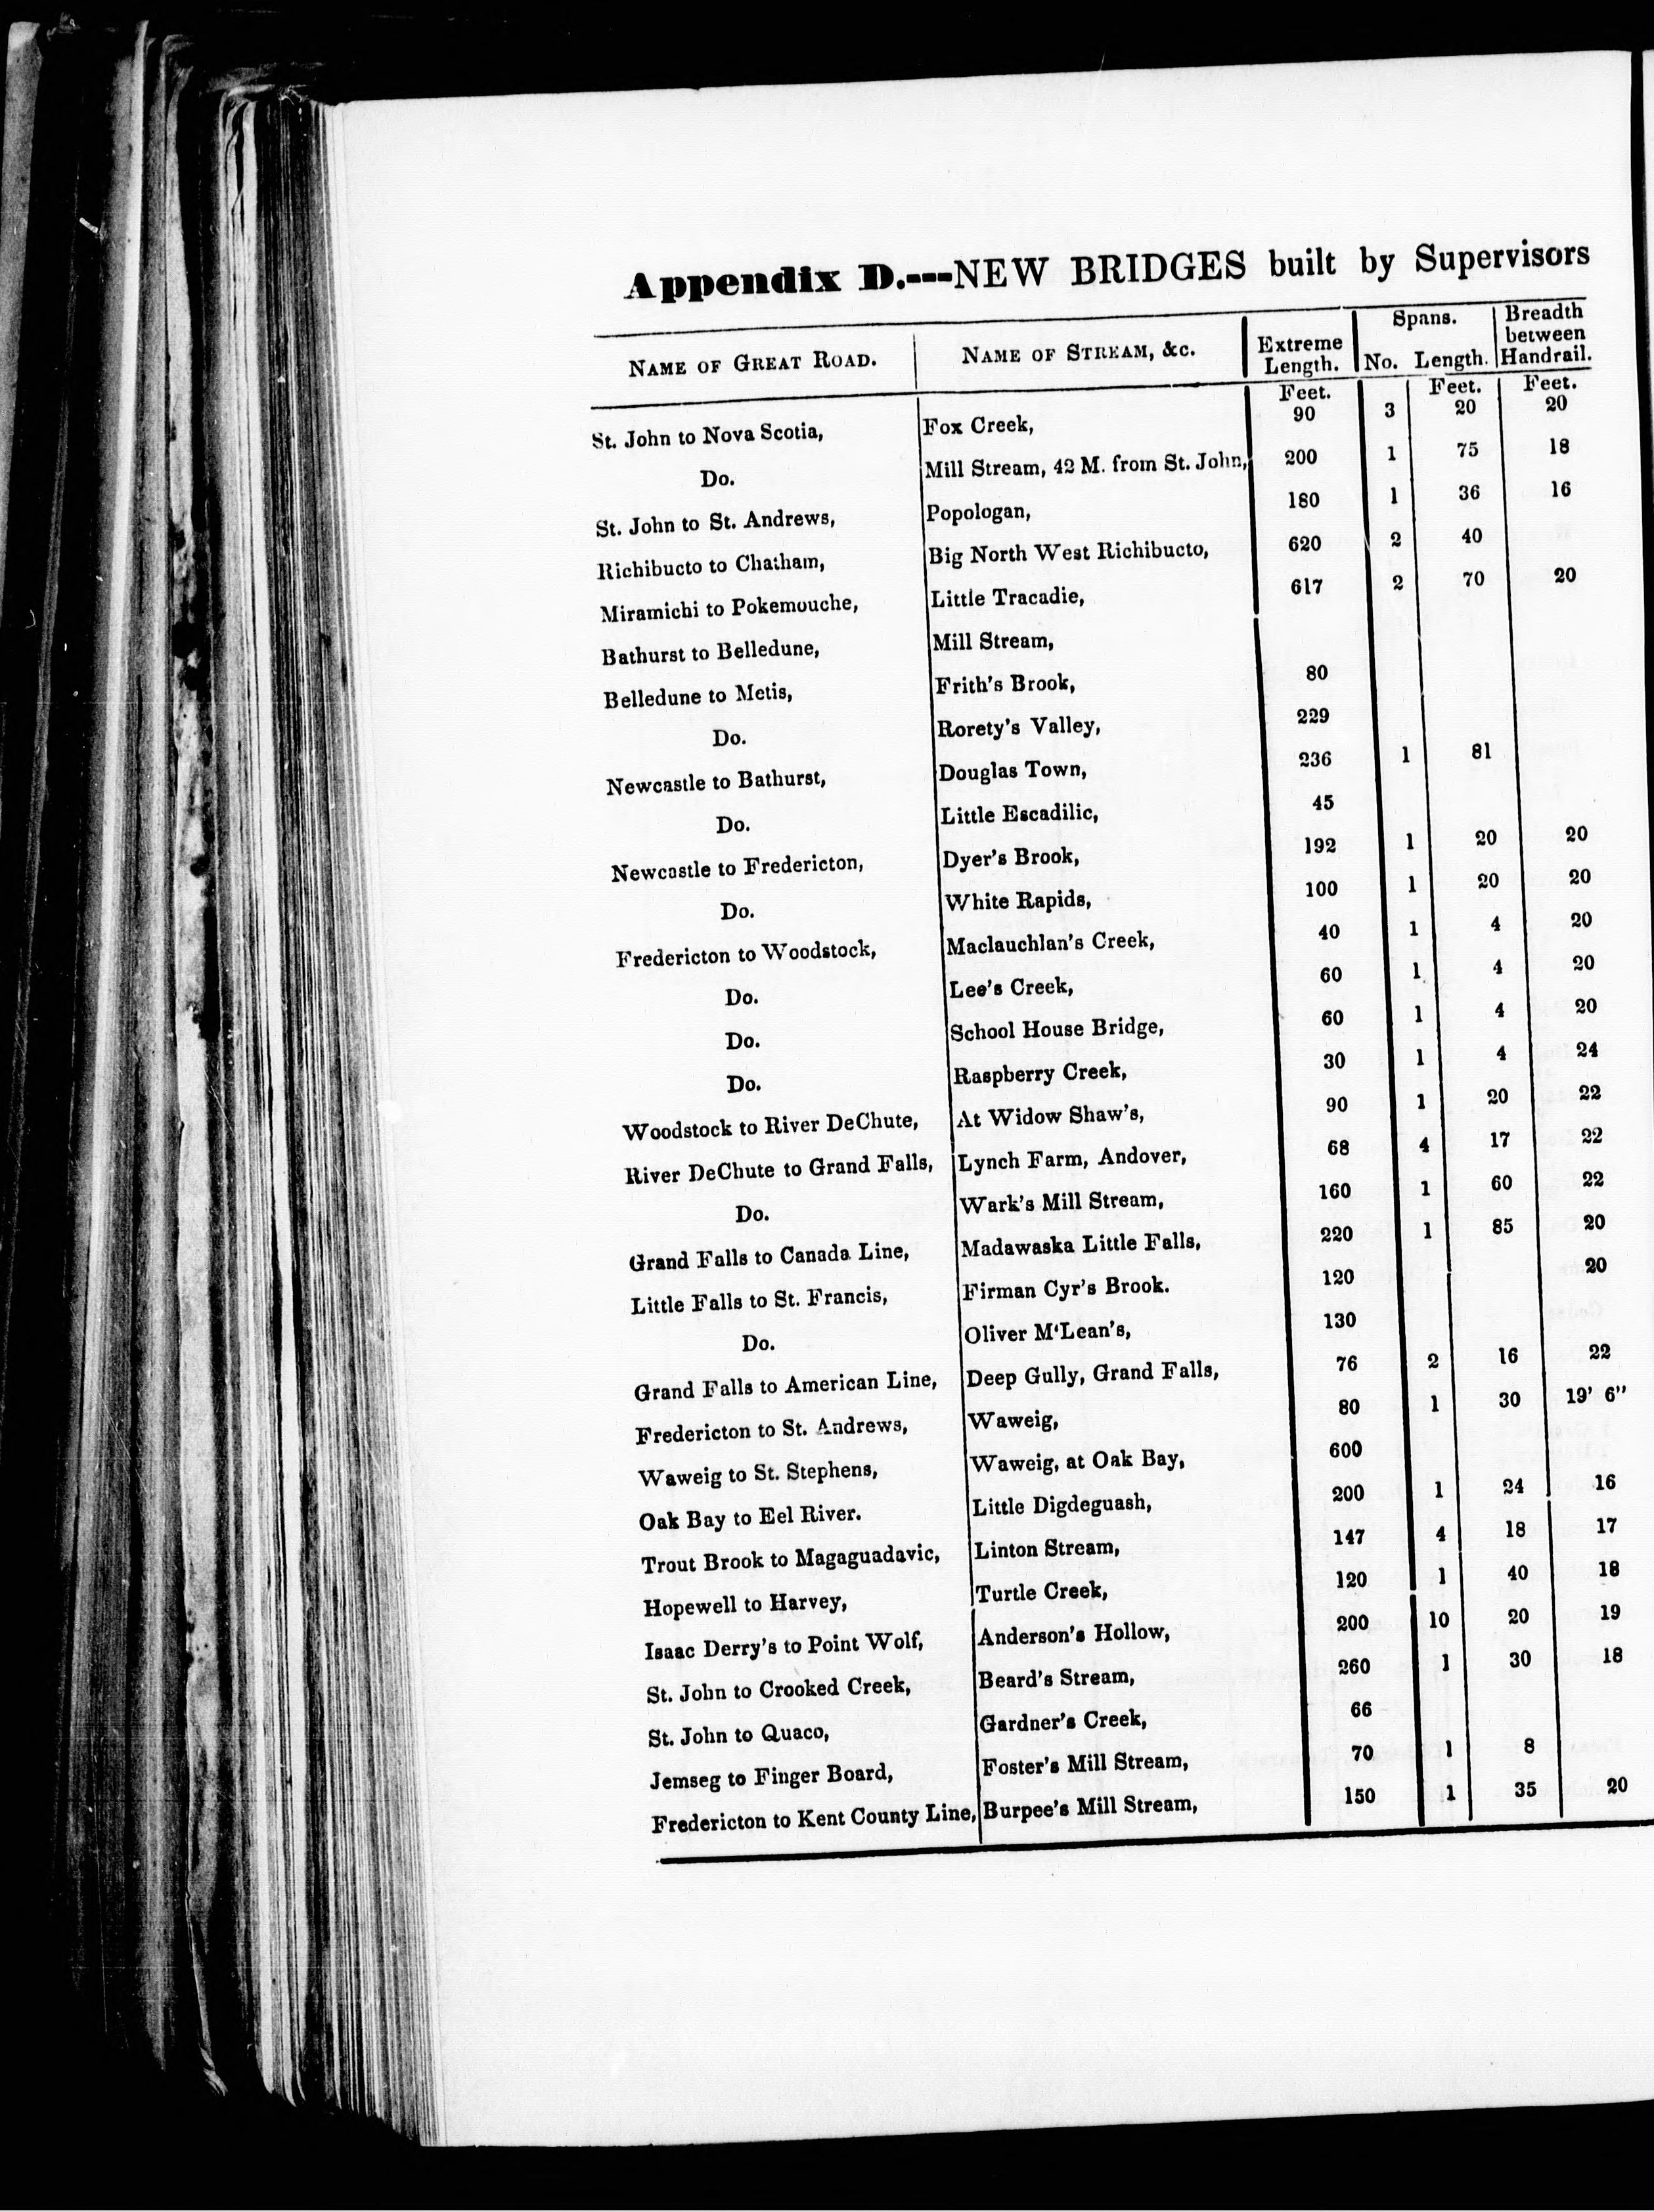 Appendix D.---NEW BRIDGES built by Supervisors
NAME OF GREAT ROAD. NAME OF STREAM, &c. Extreme Length. Spans. No. Length. Breadth between Handrail.
Feet. Feet. Feet.
St. John to Nova Scotia, Fox Creek, 90 3 20 20
Do. Mill Stream, 42 M. from St. John, 200 1 75 18
St. John to St. Andrews, Popologan, 180 1 36 16
Richibucto to Chatham, Big North West Richibucto, 620 2 40
Miramichi to Pokemouche, Little Tracadie, 617 2 70 20
Bathurst to Belledune, Mill Stream,
Belledune to Metis, Frith's Brook, 80
Do. Rorety's Valley, 229
Newcastle to Bathurst, Douglas Town, 236 1 81
Do. Little Escadilic, 45
Newcastle to Fredericton, Dyer's Brook, 192 1 20 20
Do. White Rapids, 100 1 20 20
Fredericton to Woodstock, Maclauchlan's Creek, 40 1 4 20
Do. Lee's Creek, 60 1 4 20
Do. School House Bridge, 60 1 4 20
Do. Raspberry Creek, 30 1 4 24
Woodstock to River DeChute, At Widow Shaw's, 90 1 20 22
River DeChute to Grand Falls, Lynch Farm, Andover, 68 4 17 22
Do. Wark's Mill Stream, 160 1 60 22
Grand Falls to Canada Line, Madawaska Little Falls, 220 1 85 20
Little Falls to St. Francis, Firman Cyr's Brook. 120 20
Do. Oliver M'Lean's, 130
Grand Falls to American Line, Deep Gully, Grand Falls, 76 2 16 22
Fredericton to St. Andrews, Waweig, 80 1 30 19' 6"
Waweig to St. Stephens, Waweig, at Oak Bay, 600
Oak Bay to Eel River. Little Digdeguash, 200 1 24 16
Trout Brook to Magaguadavic, Linton Stream, 147 4 18 17
Hopewell to Harvey, Turtle Creek, 120 1 40 18
Isaac Derry's to Point Wolf, Anderson's Hollow, 200 10 20 19
St. John to Crooked Creek, Beard's Stream, 260 1 30 18
St. John to Quaco, Gardner's Creek, 66
Jemseg to Finger Board, Foster's Mill Stream, 70 1 8
Fredericton to Kent County Line, Burpee's Mill Stream, 150 1 35 20